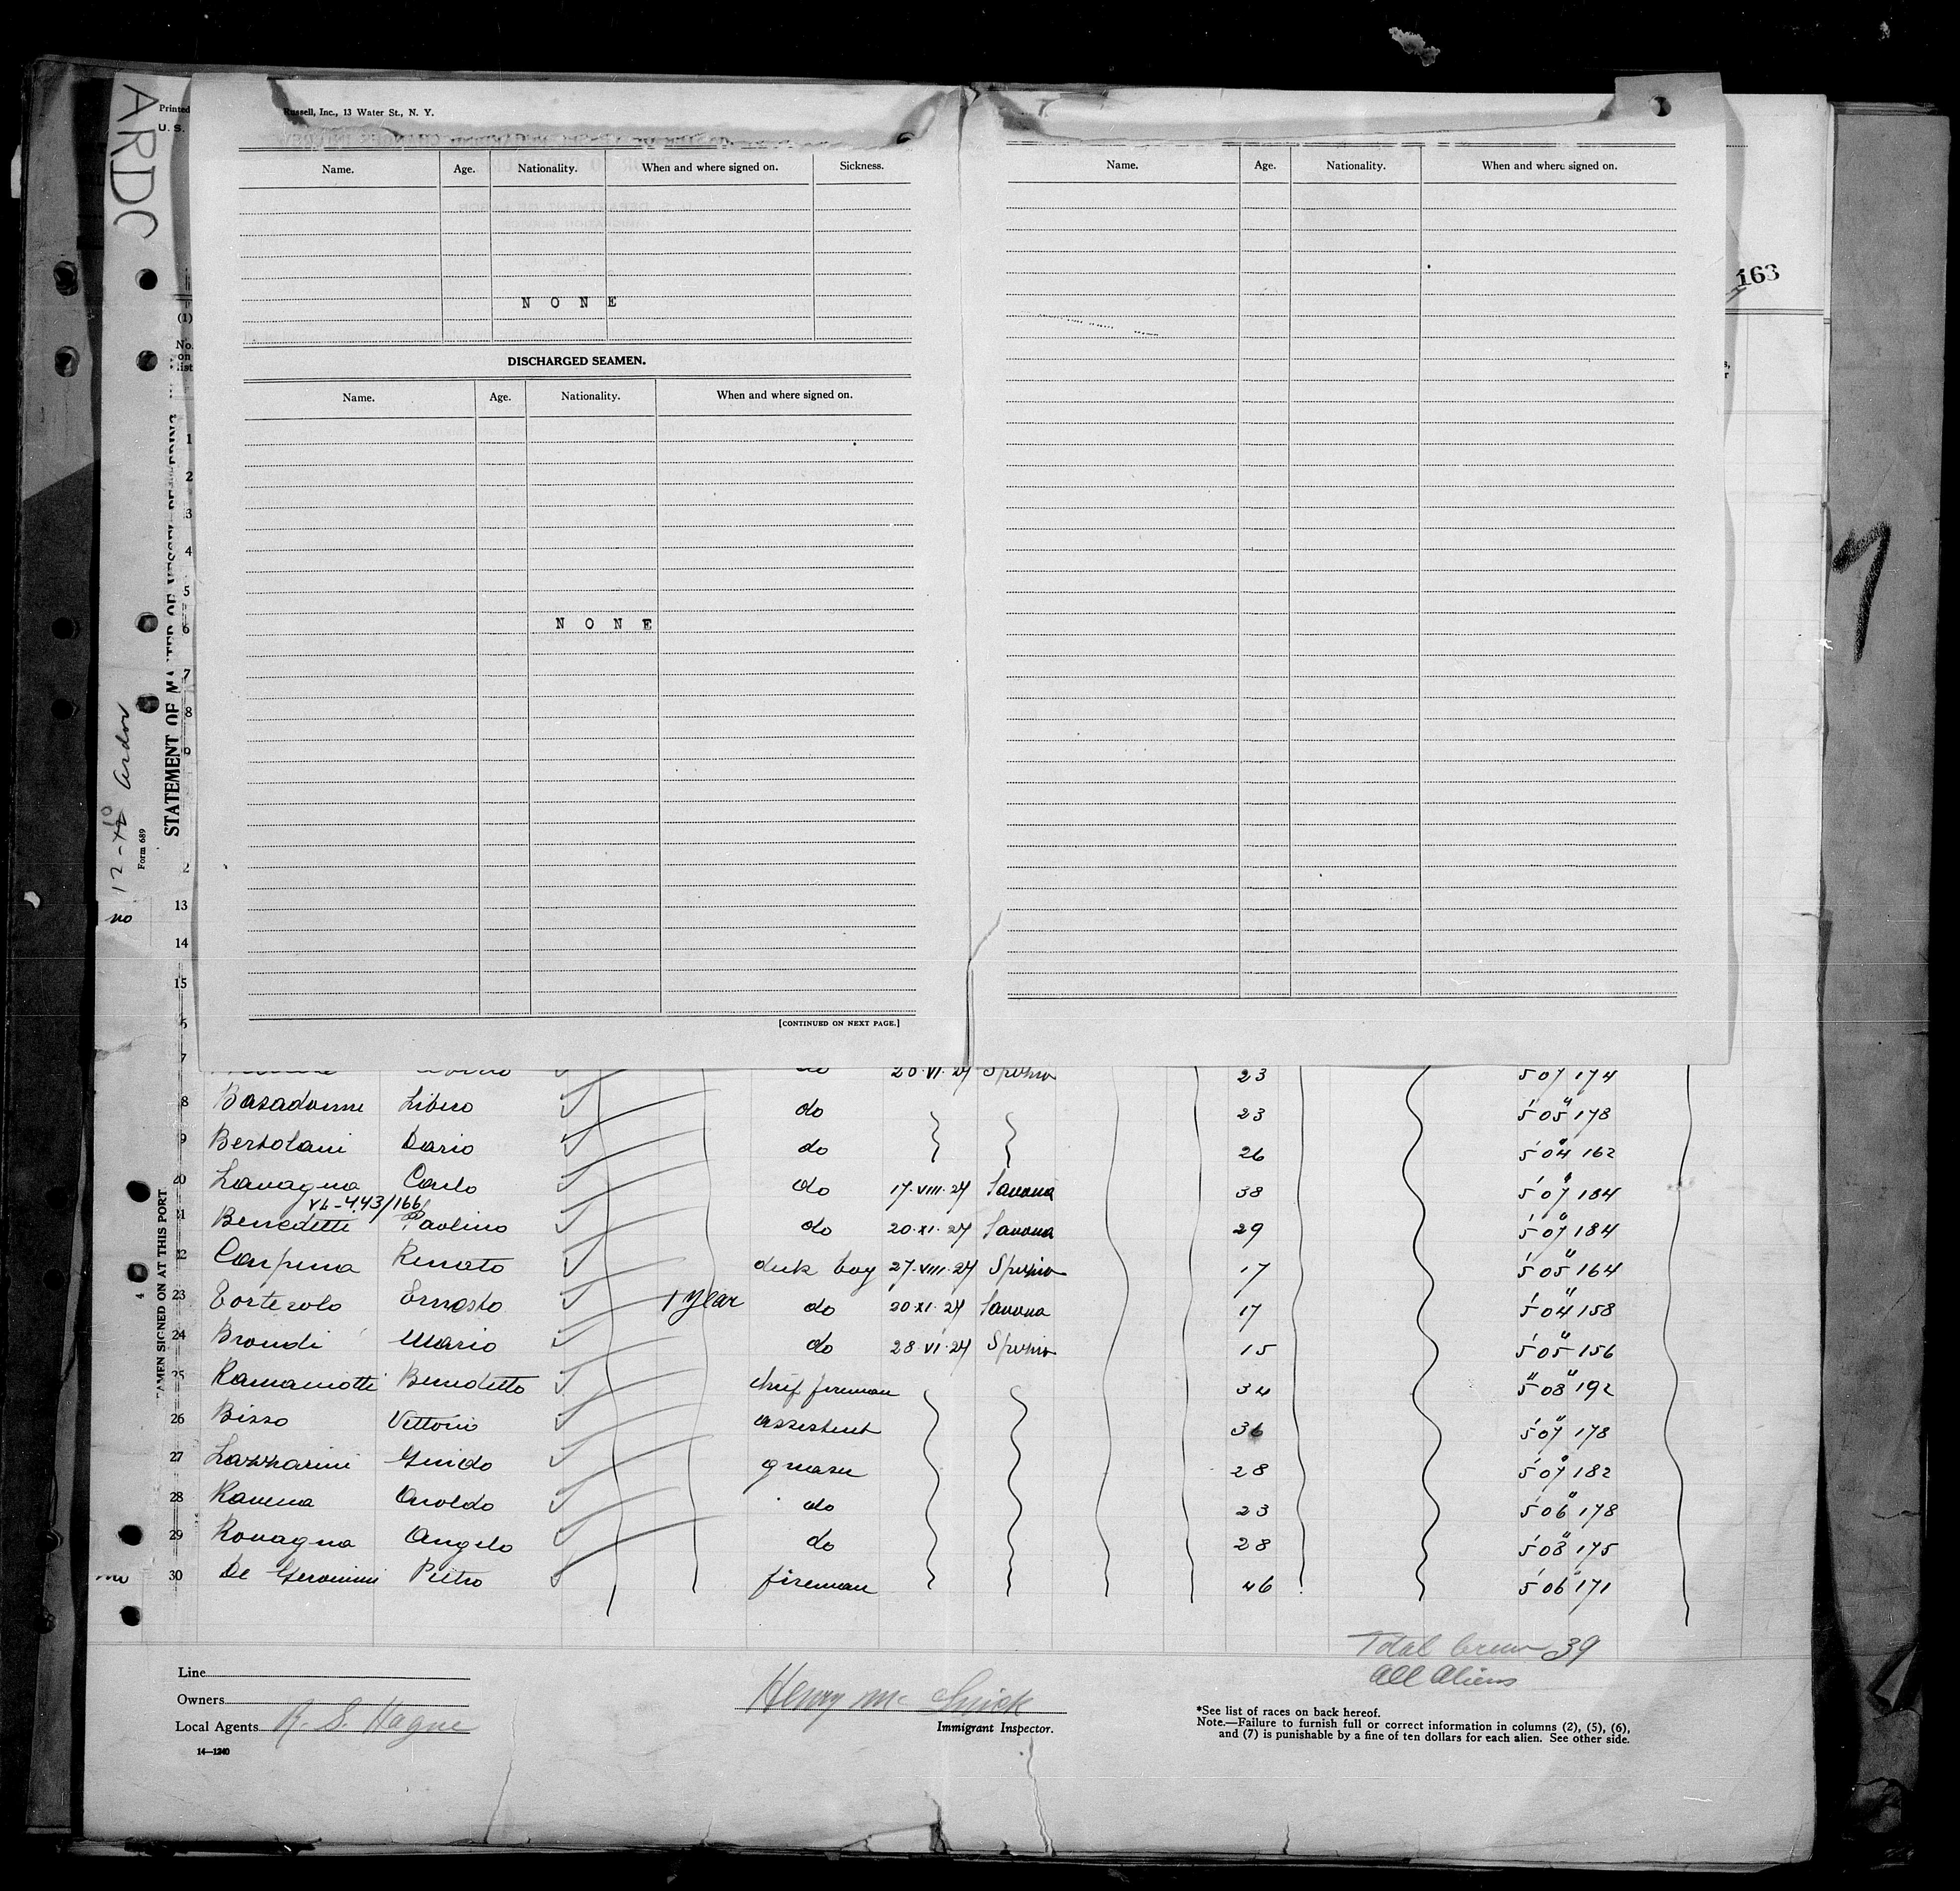 ARDC
Printed
U. S.
Russell, Inc., 13 Water St., N. Y.
Name. Age. Nationality. When and where signed on. Sickness.
NONE
DISCHARGED SEAMEN.
Name. Age. Nationality. When and where signed on.
NONE
[CONTINUED ON NEXT PAGE.]
Name. Age. Nationality. When and where signed on.
163
7
(1)
No.
on
list
1
2
3
4
5
6
7
8
9
2
13
14
15
Form 689
no
STATEMENT OF
SEAMEN SIGNED ON AT THIS PORT
4
7 do 28·VI·24 23 5 07 174
8 Basadonne Libero do 23 5 05 178
9 Bertolani Dario do 26 5 04 162
20 Lavagna Carlo do 17·VIII·24 Savona 38 5 07 184
VL-443/166
21 Benedetti Paolino do 20·XI·24 Savona 29 5 07 184
22 Carpena Renato deck boy 27·VIII·24 17 5 05 164
23 Tortezolo Ernesto 1 year do 20·XI·24 Savona 17 5 04 158
24 Brondi Mario do 28·VI·24 15 5 05 156
25 Ramamotti Benedetto chief fireman 34 5 08 192
26 Bisso Vittorio assistent 36 5 07 178
27 Lazzarini Guido greaser 28 5 07 182
28 Ravena Aroldo do 23 5 06 178
29 Rovagna Angelo do 28 5 08 175
30 De Geronimi Pietro fireman 46 5 06 171
Total crew 39
All Aliens
Line
Owners
Local Agents R. S. Hague
14—1240
Henry Mc
Immigrant Inspector.
*See list of races on back hereof.
Note.—Failure to furnish full or correct information in columns (2), (5), (6),
and (7) is punishable by a fine of ten dollars for each alien. See other side.